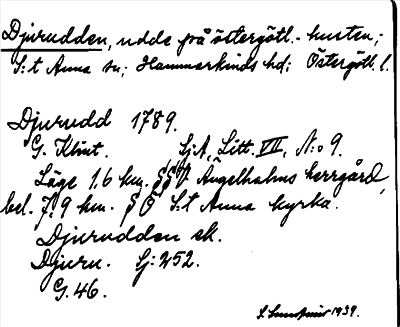 Djurudden, udde på östergötl.-kusten;
S:t Anna sn; Hammarkinds hd; Östergötl. l.
Djurudd 1789.
G. Klint. Sj:A, Litt. VII, N:o 9.
Läge 1,6 km. Ängelholms herrgård,
bel. 7,9 km. S Ö S:t Anna kyrka.
Djurudden sk.
Djuru. Sj: 252.
G. 46.
1939.